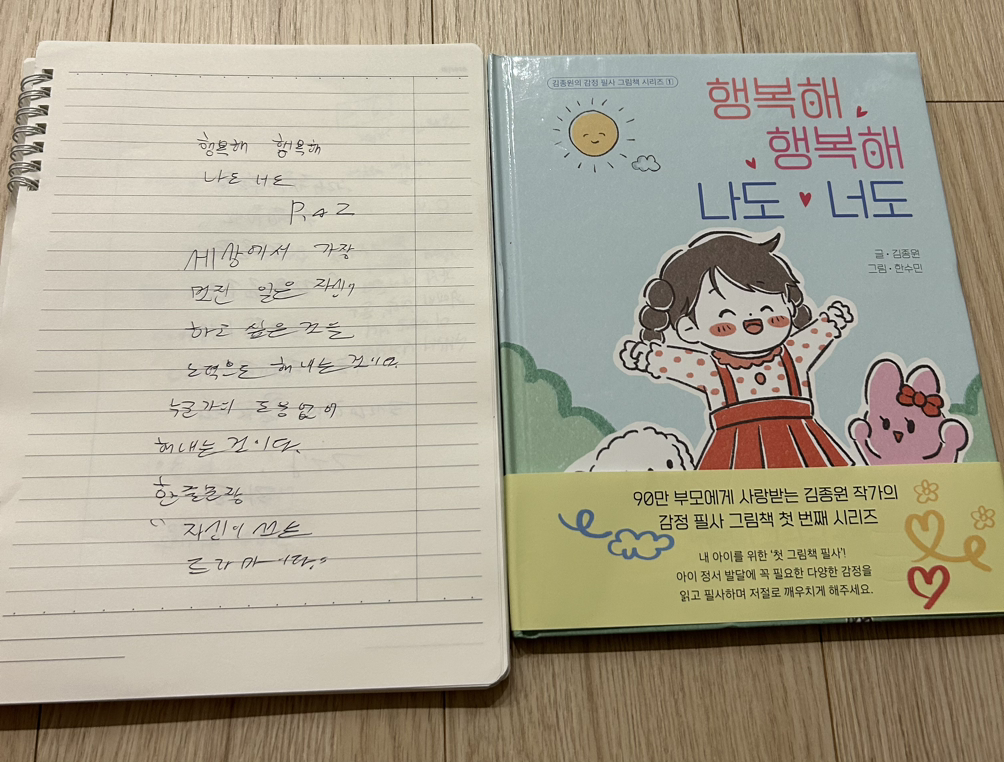 행복해 행복해
나도 너도
P. 22
세상에서 가장
멋진 일은 자신이
하고 싶은 것을
노력으로 해내는 것이고,
누군가의 도움없이
해내는 것이다.
한줄문장
"자신이 쓰는
드라마이다."
김종원의 감정 필사 그림책 시리즈 ①
행복해
행복해
나도 너도
글 · 김종원
그림 · 한수민
90만 부모에게 사랑받는 김종원 작가의
감정 필사 그림책 첫 번째 시리즈
내 아이를 위한 '첫 그림책 필사'!
아이 정서 발달에 꼭 필요한 다양한 감정을
읽고 필사하며 저절로 깨우치게 해주세요.